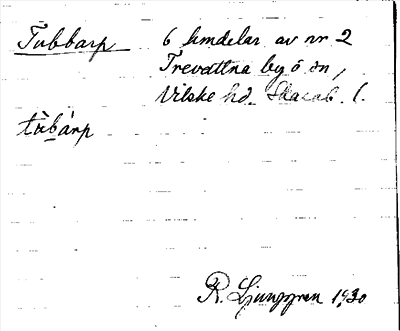 Tubbarp 6 hmdelar av nr 2
Trevattna by o sn,
Vilske hd. Skarab. l.
tùbárp
R. Ljunggren 1930